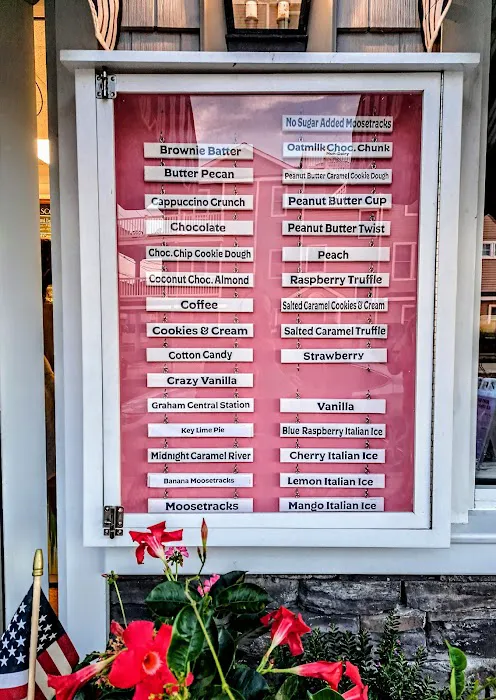 Brownie Batter
Butter Pecan
Cappuccino Crunch
Chocolate
Choc.Chip Cookie Dough
Coconut Choc. Almond
Coffee
Cookies & Cream
Cotton Candy
Crazy Vanilla
Graham Central Station
Key Lime Pie
Midnight Caramel River
Banana Moosetracks
Moosetracks
No Sugar Added Moosetracks
Oatmilk Choc. Chunk
Non Dairy
Peanut Butter Caramel Cookie Dough
Peanut Butter Cup
Peanut Butter Twist
Peach
Raspberry Truffle
Salted Caramel Cookies & Cream
Salted Caramel Truffle
Strawberry
Vanilla
Blue Raspberry Italian Ice
Cherry Italian Ice
Lemon Italian Ice
Mango Italian Ice